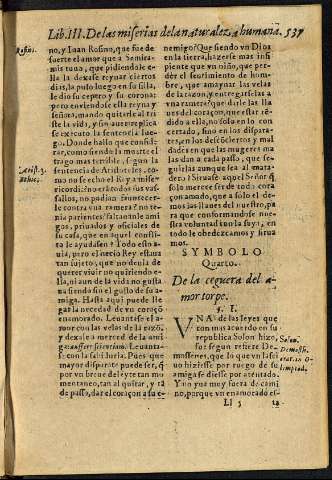 Lib. III. De las miserias de la naturaleza humana. 537
Rosino.
no, y Iuan Rosino, que fue de
fuerte el amor que a Semira-
mis tuua, que pidiendole e-
lla la dexase reynar ciertos
dias, la puso luego en su silla,
le dio su ceptro, y su corona;
pero enviendose ella reyna y
señora, mandò quitar al tris-
te la vida, y sin auer replica
se executò la sentencia lue-
go. Donde hallo que consi-
derar, como siendo la muerte el
trago mas terrible, segun la
sentencia de Aristoteles, co-
mo se holuidò el Rey a mi ser-
Arist. 3.
Ethic.
vasallos, no pudian
contra una ramera? no te-
nia parientes? faltaronle ami-
gos, priuados y oficiales de
su casa, que en aquel confli-
to le ayudasen? Todo esto a-
uia, pero el necio Rey estaua
tan sujeto, que no denia de
querer viuir no queriendo e-
lla, ni aun de la vida no gusta
na siendo sin el gusto de su a-
miga. Hasta aqui puede lle-
gar la necedad de vn coraçõ
enamorado. Leuantase el a-
mor con las velas de la razõ,
y dexale a merced de la ami-
ga
se con la
mayor disparate puede ser, q̃
por vn breue deleyte tan mo-
mentaneo, tan al quitar, y tã
de passo, dar el coraçon a su e-
nemigo? Que siendo vn Dios
en la tierra, hazerse mas insi-
piente que vn niño, que per-
der el sentimiento de hom-
bre, que amaynar las velas
de la razon, y entregarselas a
vna ramera? Que darle las lla-
ues del coraçon, que estar rẽ-
dido a ello, no solo en lo con-
certado, sino en los dispara-
tes, en los desconciertos y mal-
dades en que las mugeres ma-
las dan a cada passo, que se-
guirlas aunque sea al mata-
dero? Siruase aquel Señor q̃
solo merece ser de todo cora-
çon amado, que a solo el de-
mos las llaues del nuestro, pa-
ra que conformandose nue-
stra voluntad con la suya, en
todo le obedezcamos y sirua
mos.
SYMBOLO
Quarto.
De la ceguera del a-
mor torpe.
§. I.
VNA de las leyes que
con mas acuerdo en su
republica Solon hizo,
fue segun refiere De-
mostenes, que lo que vn
uo hiziesse por ruego de su
amiga se diesse por atentado.
Y no yua muy fuera de cami
no, porque vn enamorado es-
Solon.
Demost.
orat. in O-
limpiod.
Ll 3 ta